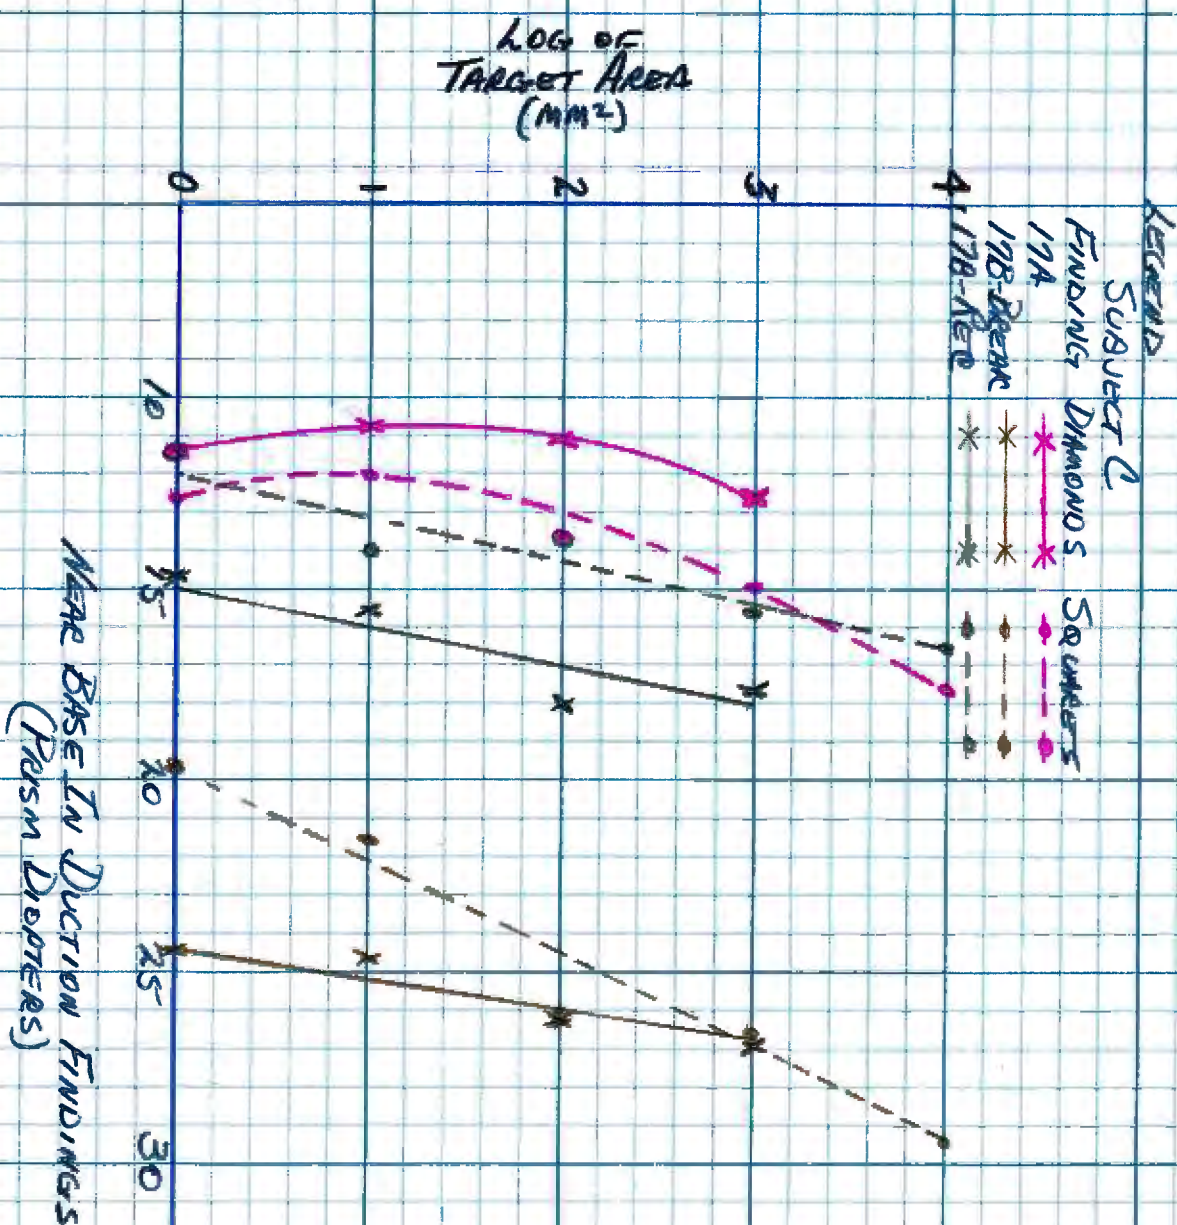 LOG OF
TARGET AREA
(MM²)
0
1
2
3
4
LEGEND
SUBJECT C
FINDING DIAMONDS SQUARES
17A
17B-BREAK
17B-REC
10
15
20
25
30
NEAR BASE IN DUCTION FINDINGS
(PRISM DIOPTERS)